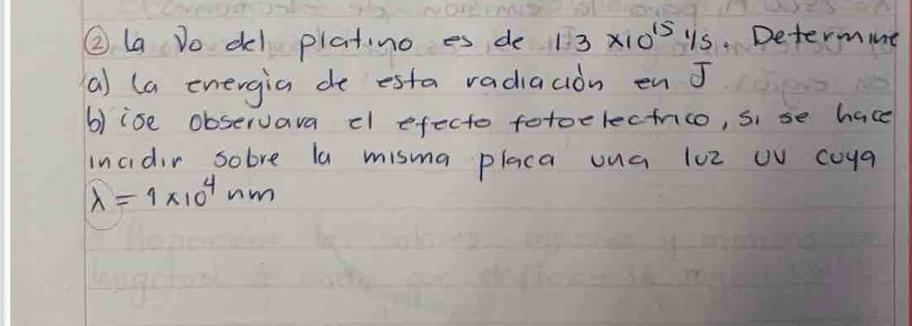 ② la νo del platino es de 1.3 x10¹⁵ 1/s. Determine
a) la energia de esta radiación en J
b) ¿se observara el efecto fotoelectrico, si se hace
incidir sobre la misma placa una luz UV cuya
λ = 1 x10⁴ nm